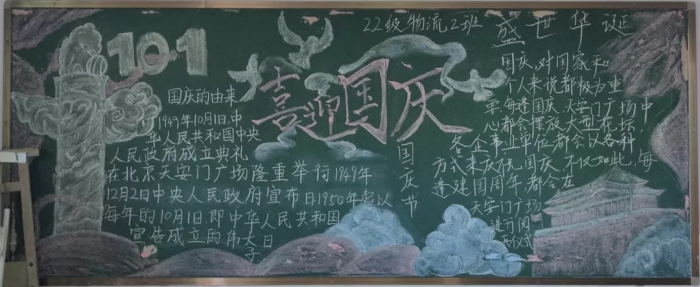 22级物流2班
10·1
喜迎国庆
盛世华诞
国庆节
国庆的由来
1949年10月1日,中
华人民共和国中央
人民政府成立典礼
在北京天安门广场隆重举行1949年
12月2日中央人民政府宣布日1950年起以
每年的10月1日即中华人民共和国
宣告成立的伟大日
子
国庆,对国家和
个人来说都极为重
要每逢国庆天安门广场中
心都会摆放大型花坛,
各企事业单位都会以各种
方式来庆祝国庆不仅如此,每
逢建国周年都会在
天安门广场
进行阅
兵仪式